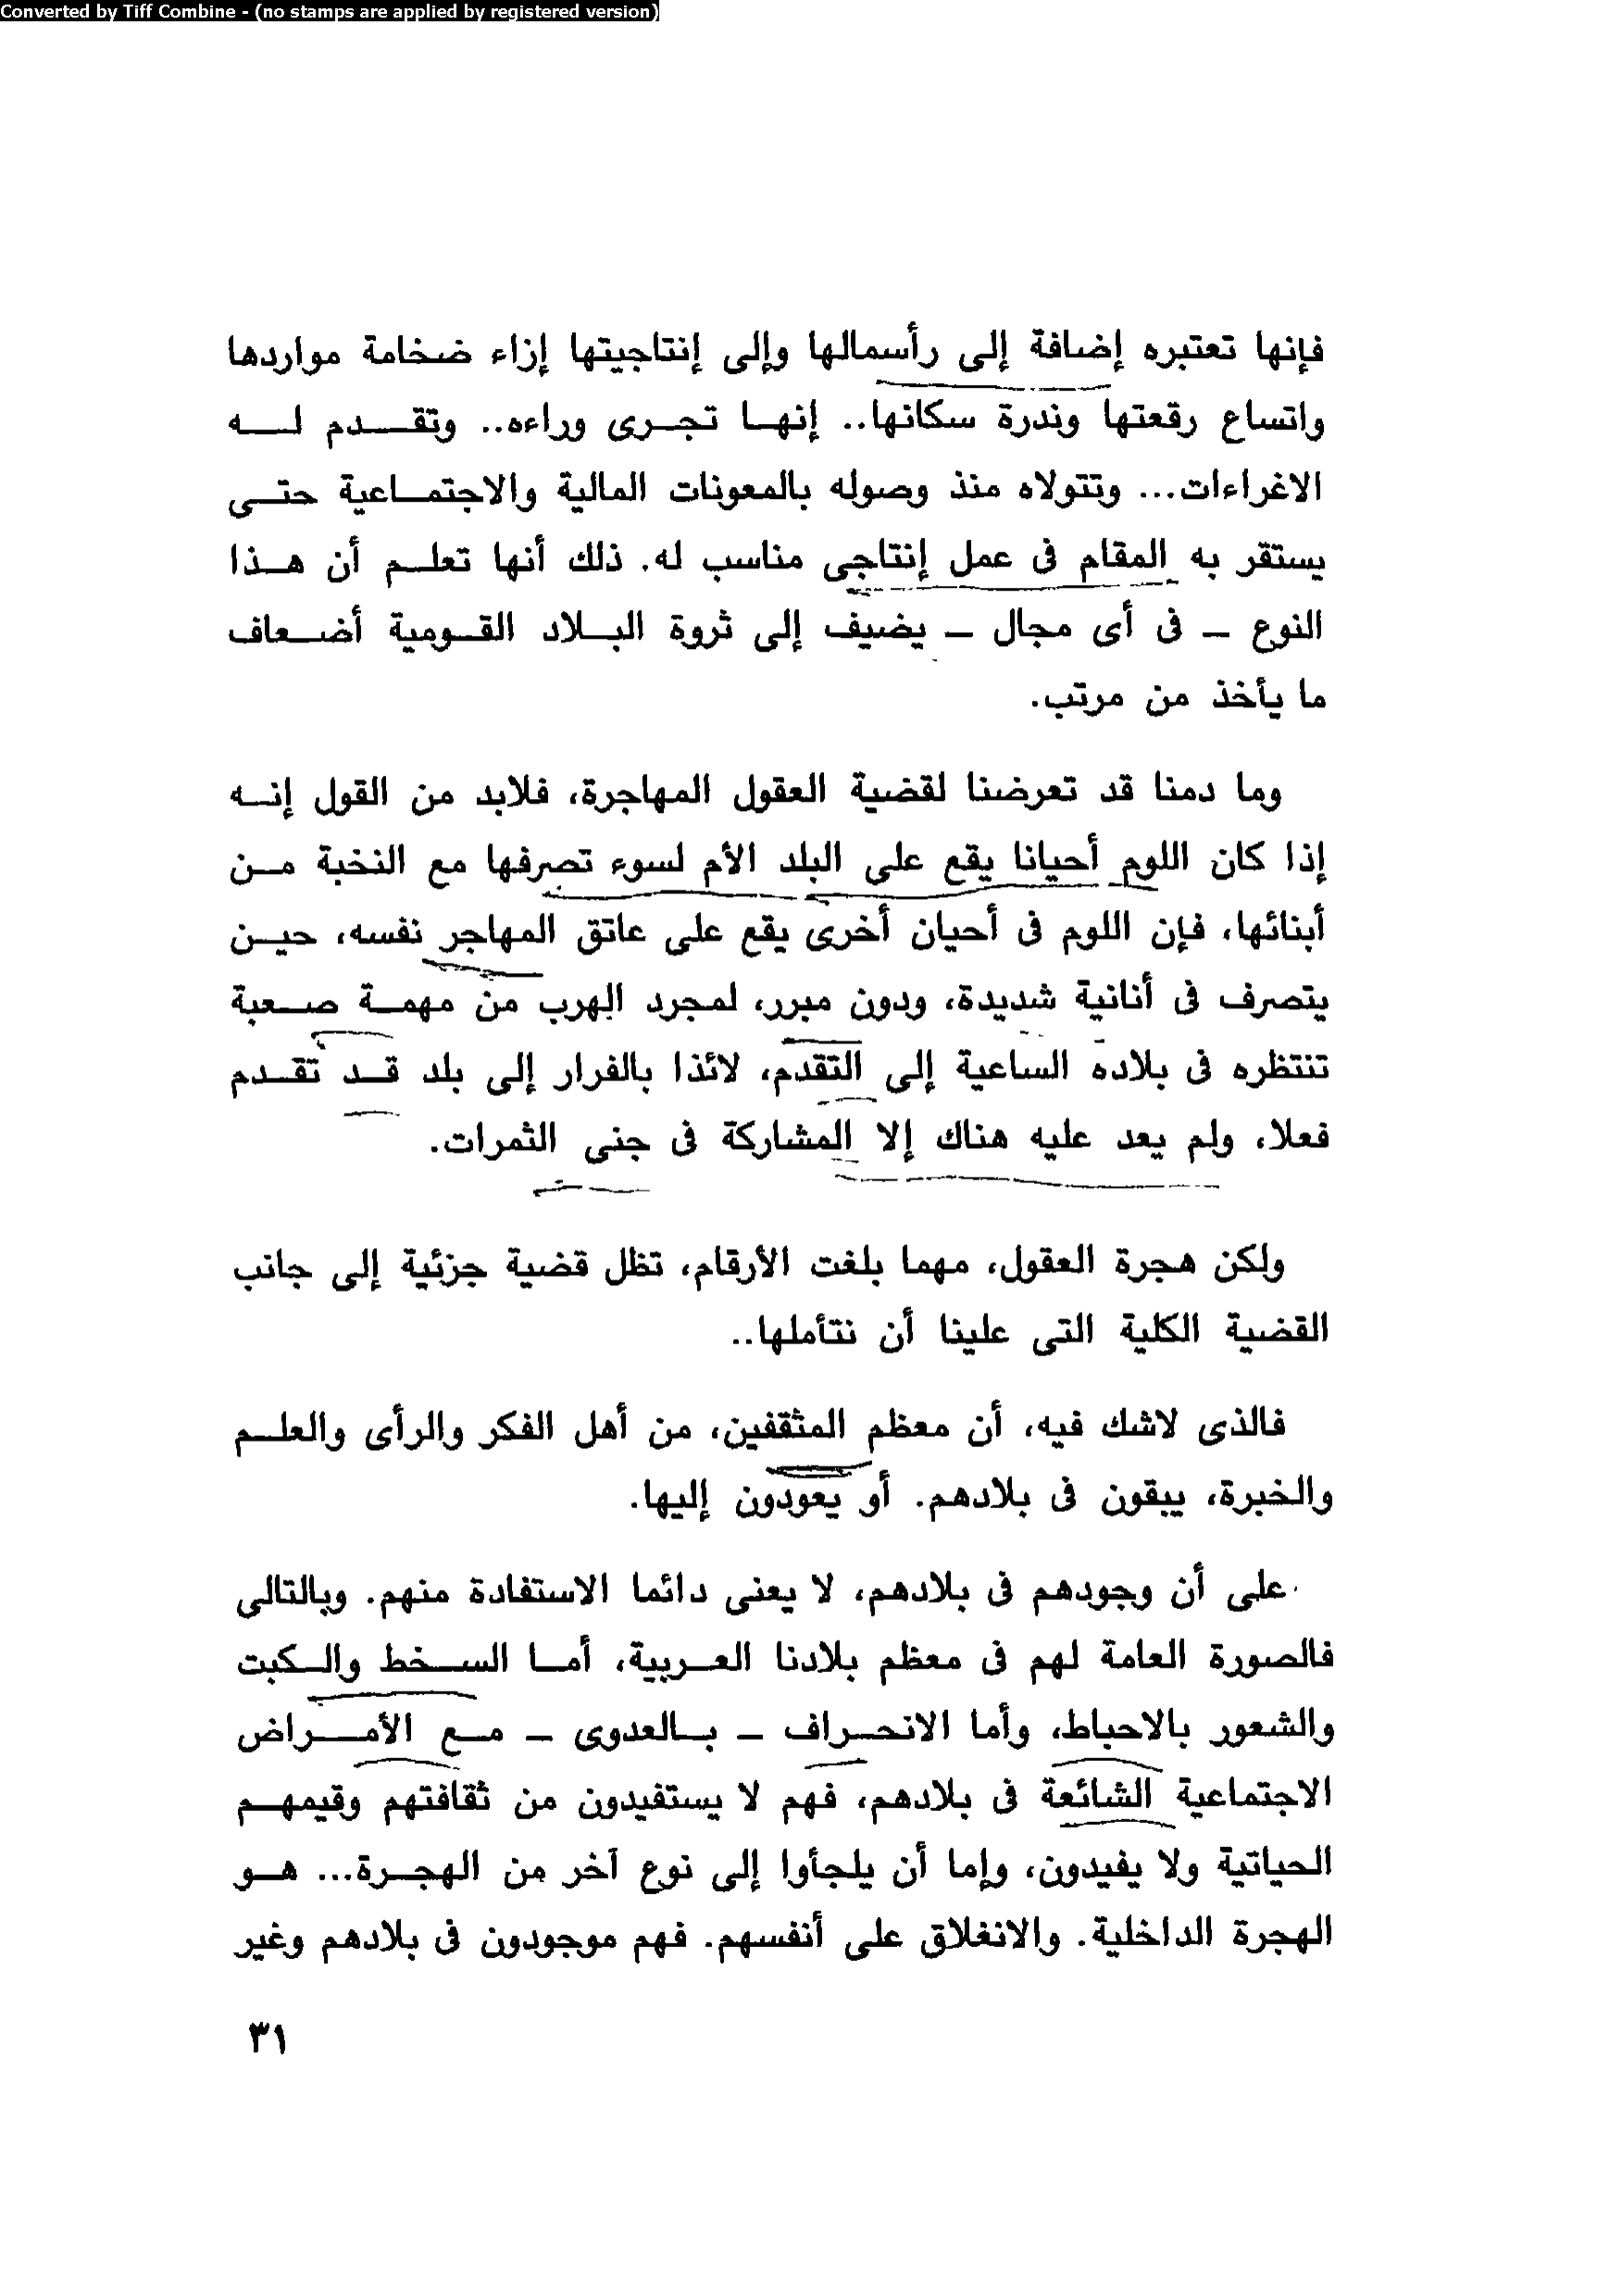 Converted by Tiff Combine - (no stamps are applied by registered version)
فإنها تعتبره إضافة إلى رأسمالها وإلى إنتاجيتها إزاء ضخامة مواردها
واتساع رقعتها وندرة سكانها.. إنها تجرى وراءه.. وتقدم له
الاغراءات... وتتولاه منذ وصوله بالمعونات المالية والاجتماعية حتى
يستقر به المقام فى عمل إنتاجى مناسب له. ذلك أنها تعلم أن هذا
النوع – فى أى مجال – يضيف إلى ثروة البلاد القومية أضعاف
ما يأخذ من مرتب.
وما دمنا قد تعرضنا لقضية العقول المهاجرة، فلابد من القول إنه
إذا كان اللوم أحيانا يقع على البلد الأم لسوء تصرفها مع النخبة من
أبنائها، فإن اللوم فى أحيان أخرى يقع على عاتق المهاجر نفسه، حين
يتصرف فى أنانية شديدة، ودون مبرر، لمجرد الهرب من مهمة صعبة
تنتظره فى بلاده الساعية إلى التقدم، لائذا بالفرار إلى بلد قد تقدم
فعلا، ولم يعد عليه هناك إلا المشاركة فى جنى الثمرات.
ولكن هجرة العقول، مهما بلغت الأرقام، تظل قضية جزئية إلى جانب
القضية الكلية التى علينا أن نتأملها..
فالذى لاشك فيه، أن معظم المثقفين، من أهل الفكر والرأى والعلم
والخبرة، يبقون فى بلادهم. أو يعودون إليها.
على أن وجودهم فى بلادهم، لا يعنى دائما الاستفادة منهم. وبالتالى
فالصورة العامة لهم فى معظم بلادنا العربية، أما السخط والكبت
والشعور بالاحباط، وأما الانحراف – بالعدوى – مع الأمراض
الاجتماعية الشائعة فى بلادهم، فهم لا يستفيدون من ثقافتهم وقيمهم
الحياتية ولا يفيدون، وإما أن يلجأوا إلى نوع آخر من الهجرة... هو
الهجرة الداخلية. والانغلاق على أنفسهم. فهم موجودون فى بلادهم وغير
٣١